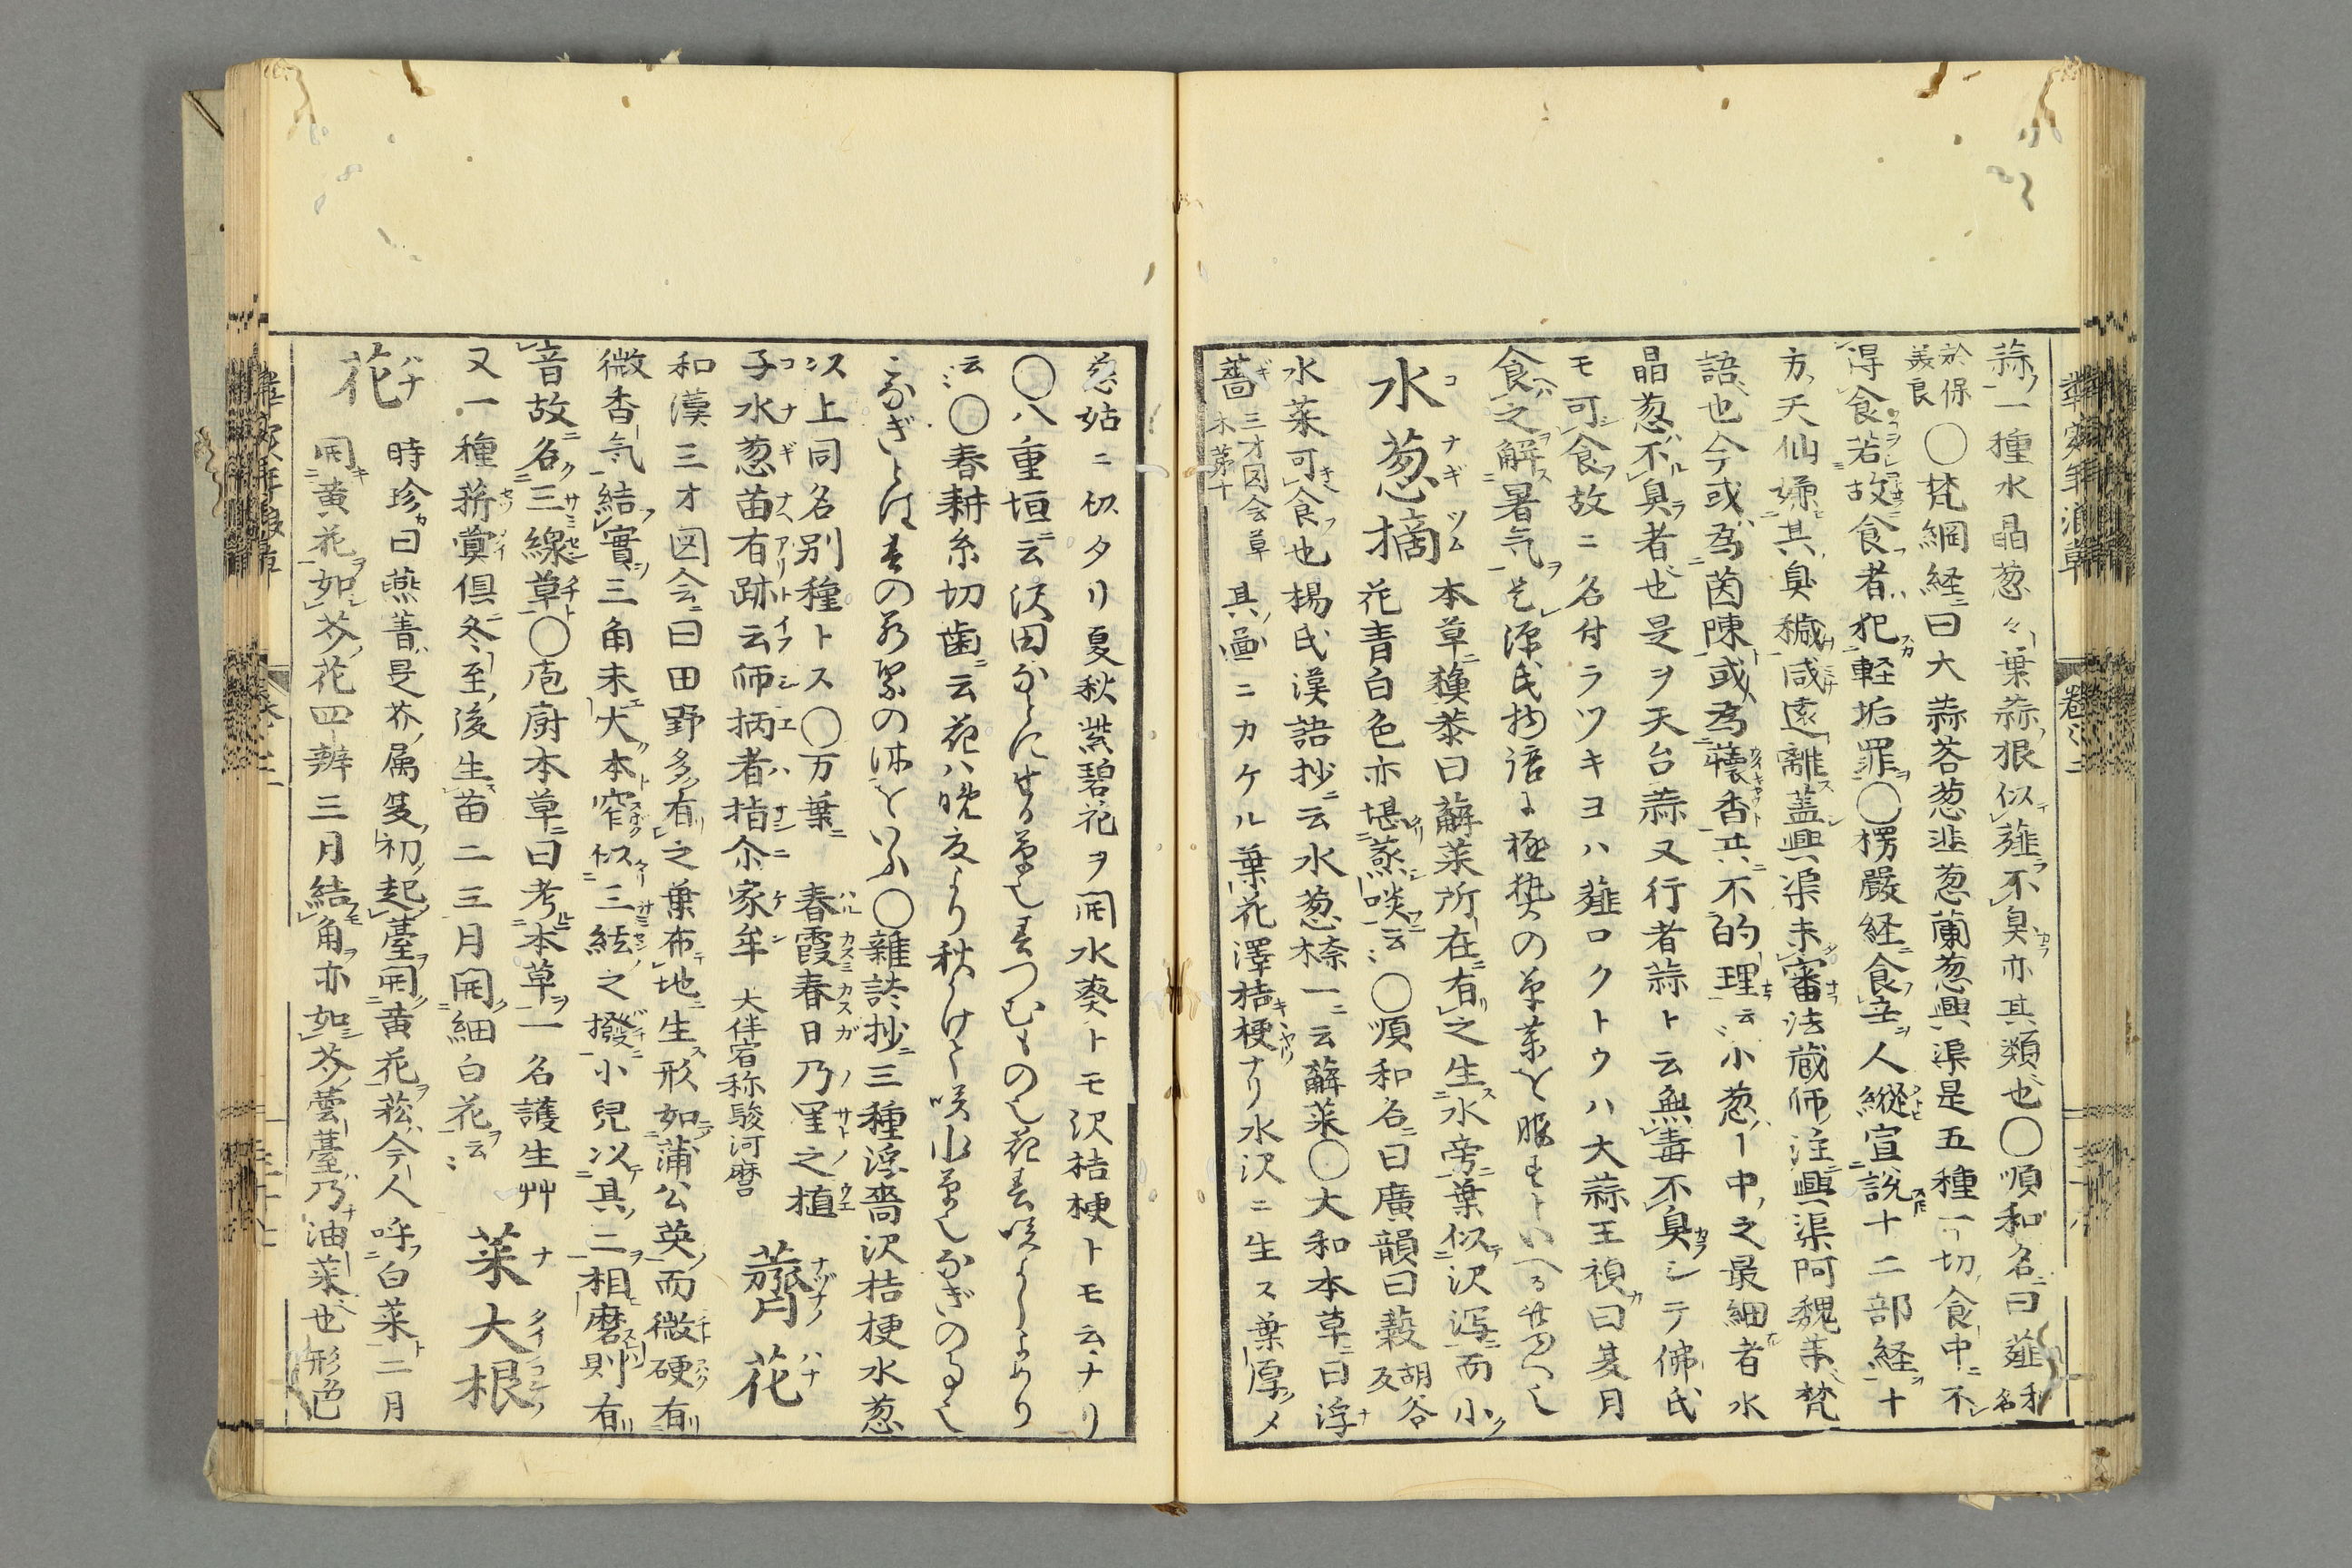 蒜ノ一種水晶葱々葉蒜根似薤不臭亦其類也〇順和名ニ曰薤和名
於保美良〇梵網経ニ曰大蒜茖葱韭葱蘭葱興渠是五種一切食中ニ不
得食若故食者犯軽垢罪〇楞嚴経ニ食辛人縱宣説十二部経十
方天仙嫌其臭穢咸遠離蓋興渠未審法蔵師注興渠阿魏未梵
語也今或為茵陳或為蘹香共不的理云云小葱ハ中之最細者水
晶葱不臭者也是ヲ天台蒜又行者蒜ト云無毒不臭シテ佛氏
モ可食故ニ名付ラツキヨハ薤ロクトウハ大蒜王禎曰夏月
食之解暑气
水葱摘 本草綱黍曰蘚菜所在有之生水旁葉似沢瀉而小
花青白色亦堪蒸啖云云〇順和名ニ曰廣韻曰蔱胡谷反
水菜可食也楊氏漢語抄ニ云水葱一ニ云蘚菜〇大和本草ニ曰浮
薔三才図会草木第十其圖ニカケル葉花澤桔梗ナリ水沢ニ生ス葉厚メ
慈姑ニ似タリ夏秋紫碧花ヲ開水葵トモ沢桔梗トモ云ナリ
〇八重垣ニ云沢田などにせる草也春つむもの也花春咲よしよめり
云云〇春耕糸切歯ニ云花ハ晩夏より秋かけて咲水草也なぎの事也
こなぎとは春の若葉の時をいふ〇雑談抄ニ三種浮薔沢桔梗水葱
以上同名別種トス〇万葉ニ 春霞春日乃里之植
子水葱苗有跡云師柄者指尓家牟 大伴宿祢駿河麿 薺花
和漢三才図会ニ曰田野多有之葉布地生形如蒲公英而微硬有
微香気結實三角末大本窄似三絃之撥小兒以其二相磨則有
音故名三線草〇庖厨本草ニ曰考本草一名護生艸
又一種菥蓂倶冬至後生苗二三月開細白花云云 菜大根
花 時珍曰燕菁是芥属夏初起薹開黄花菘今人呼白菜二月
開黄花如芥花四辨三月結角亦如芥蕓薹乃油菜也形色